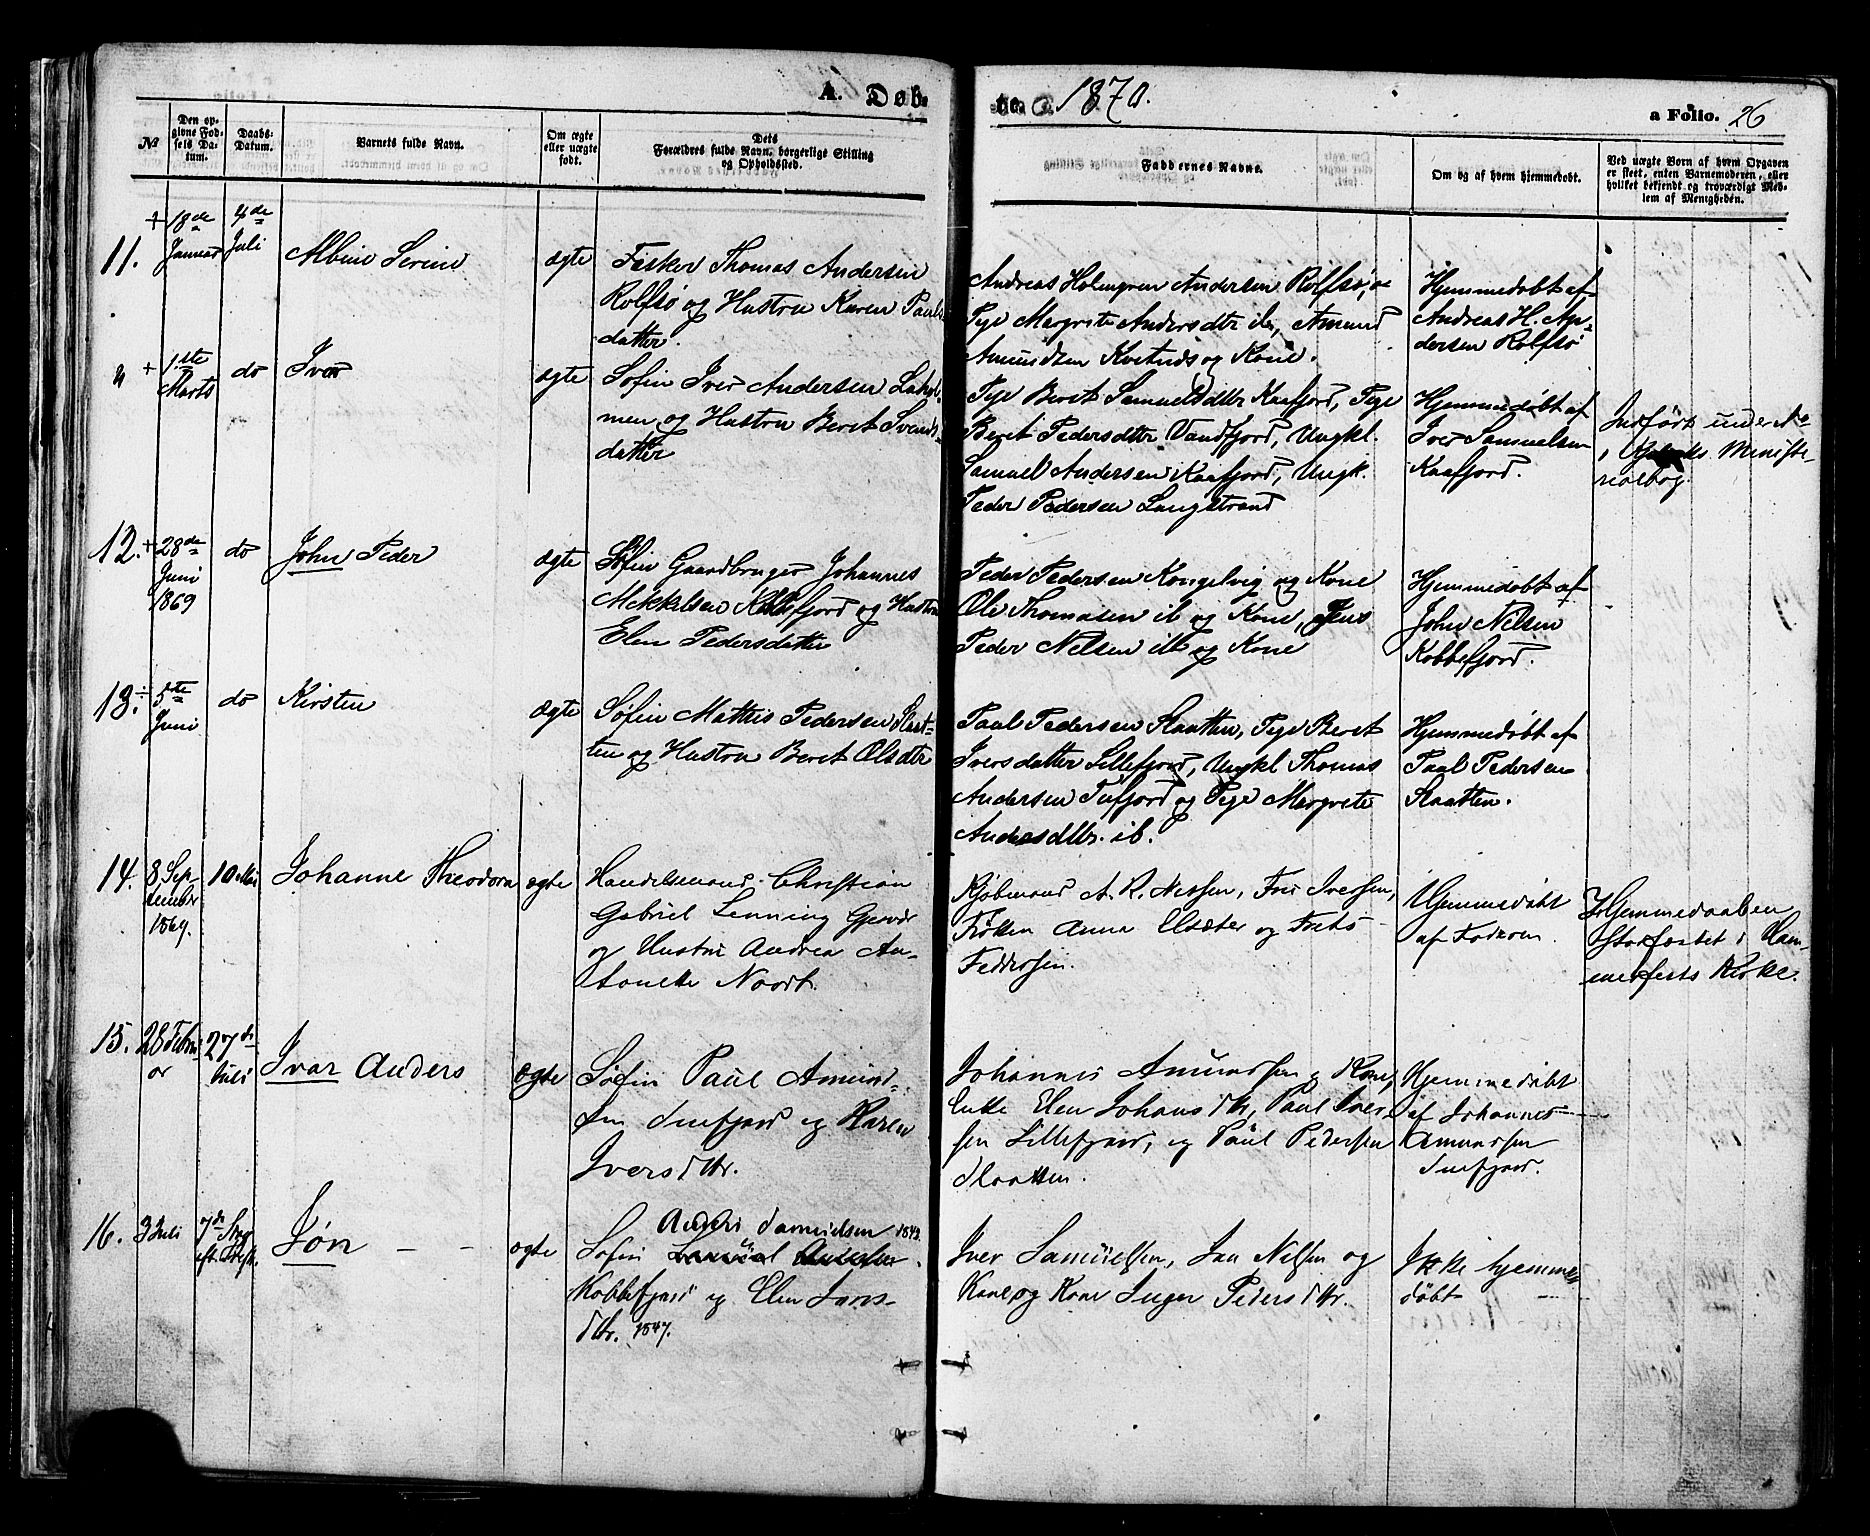 A. Døb-
te. 1870.
a Folio. 26
No
Den op-
givne Fød-
sels Da-
tum.
Daabs-
Datum.
Barnets fulde Navn.
Om ægte
eller uægte
født.
Dets
Forældres fulde Navn, borgerlige Stilling
og Opholdssted.
Faddernes Navne.
Om og af hvem hjemmedøbt.
Ved uægte Børn af hvem Opgaven
er skeet, enten Barnemoderen, eller
hvilket bekjendt og troværdigt Med-
lem af Menigheden.
11.
+ 18de
Januar
4de
Juli
Albine Serine
ægte
Fisker Thomas Andersen
Rolfsø og Hustru Karen Pauls-
datter.
Andreas Holmgren Andersen Rolfsø,
Pige Margrete Andersdtr ib, Amund
Amundsen og Kone.
Hjemmedøbt af
Andreas H. An-
dersen Rolfsø
+ 1ste
Marts
do
Iver
ægte
Søfin Iver Andersen
og Hustru Beret Svends-
datter
Pige Beret Samuelsdtr Kaafjord, Pige
Berit Pedersdtr Vandfjord, Ungkl.
Samuel Andersen Kaafjord, Ungk.
Peder Pedersen Langstrand
Hjemmedøbt af
Iver Samuelsen
Kaafjord.
Indført under
Ministe-
rialbog.
12.
+ 28de
Juni
1869
do
John Peder
ægte
Søfin Gaardbruger Johannes
Mikkelsen Kobbefjord og Hustru
Elen Pedersdatter
Peder Pedersen Kongelvig og Kone
Ole Thomasen ib og Kone, Jens
Peder Nelsen ib og Kone
Hjemmedøbt af
John Nelsen
Kobbefjord.
13.
÷ 5te
Juni
do
Kirsten
ægte
Søfin Mathis Pedersen Slaat-
ten og Hustru Beret Olsdtr
Paul Pedersen Slaatten, Pige Beret
Iversdatter Lillefjord, Ungkl Thomas
Andersen Tufjord og Pige Margrete
Andersdtr. ib.
Hjemmedøbt af
Paul Pedersen
Slaatten.
14.
8 Sep-
tember
1869.
10 Mai
Johanne Theodora
ægte
Handelsmand Christian
Gabriel Lenning Gjesvær
og Hustru Andrea An-
tonette Noodt.
Kjøbmand A. R. Nissen, Fru Iversen,
Frøken Anna Elsæter og Frits
Feddersen.
Hjemmedøbt
af Faderen.
Hjemmedaaben
stadfæstet i Ham-
merfests Kirke.
15.
28 Febru
ar
27de
Juli
Ivar Anders
ægte
Søfin Paul Amund-
sen Snefjord og Karen
Iversdtr.
Johannes Amundsen og Kone,
Enke Elen Johansdtr, Paul Iver-
sen Lillefjord, og Paul Pedersen
Slaatten.
Hjemmedøbt
af Johannes
Amundsen
Snefjord.
16.
3 Juli
7de
Jøn - -
ægte
Anders Samuelsen 1843.
Søfin
Kobbefjord og Elen Jons-
dtr. 1847.
Iver Samuelsen, Jan Nelsen og
Kone og Kone Inger Pedersdtr.
Ikke hjemme-
døbt